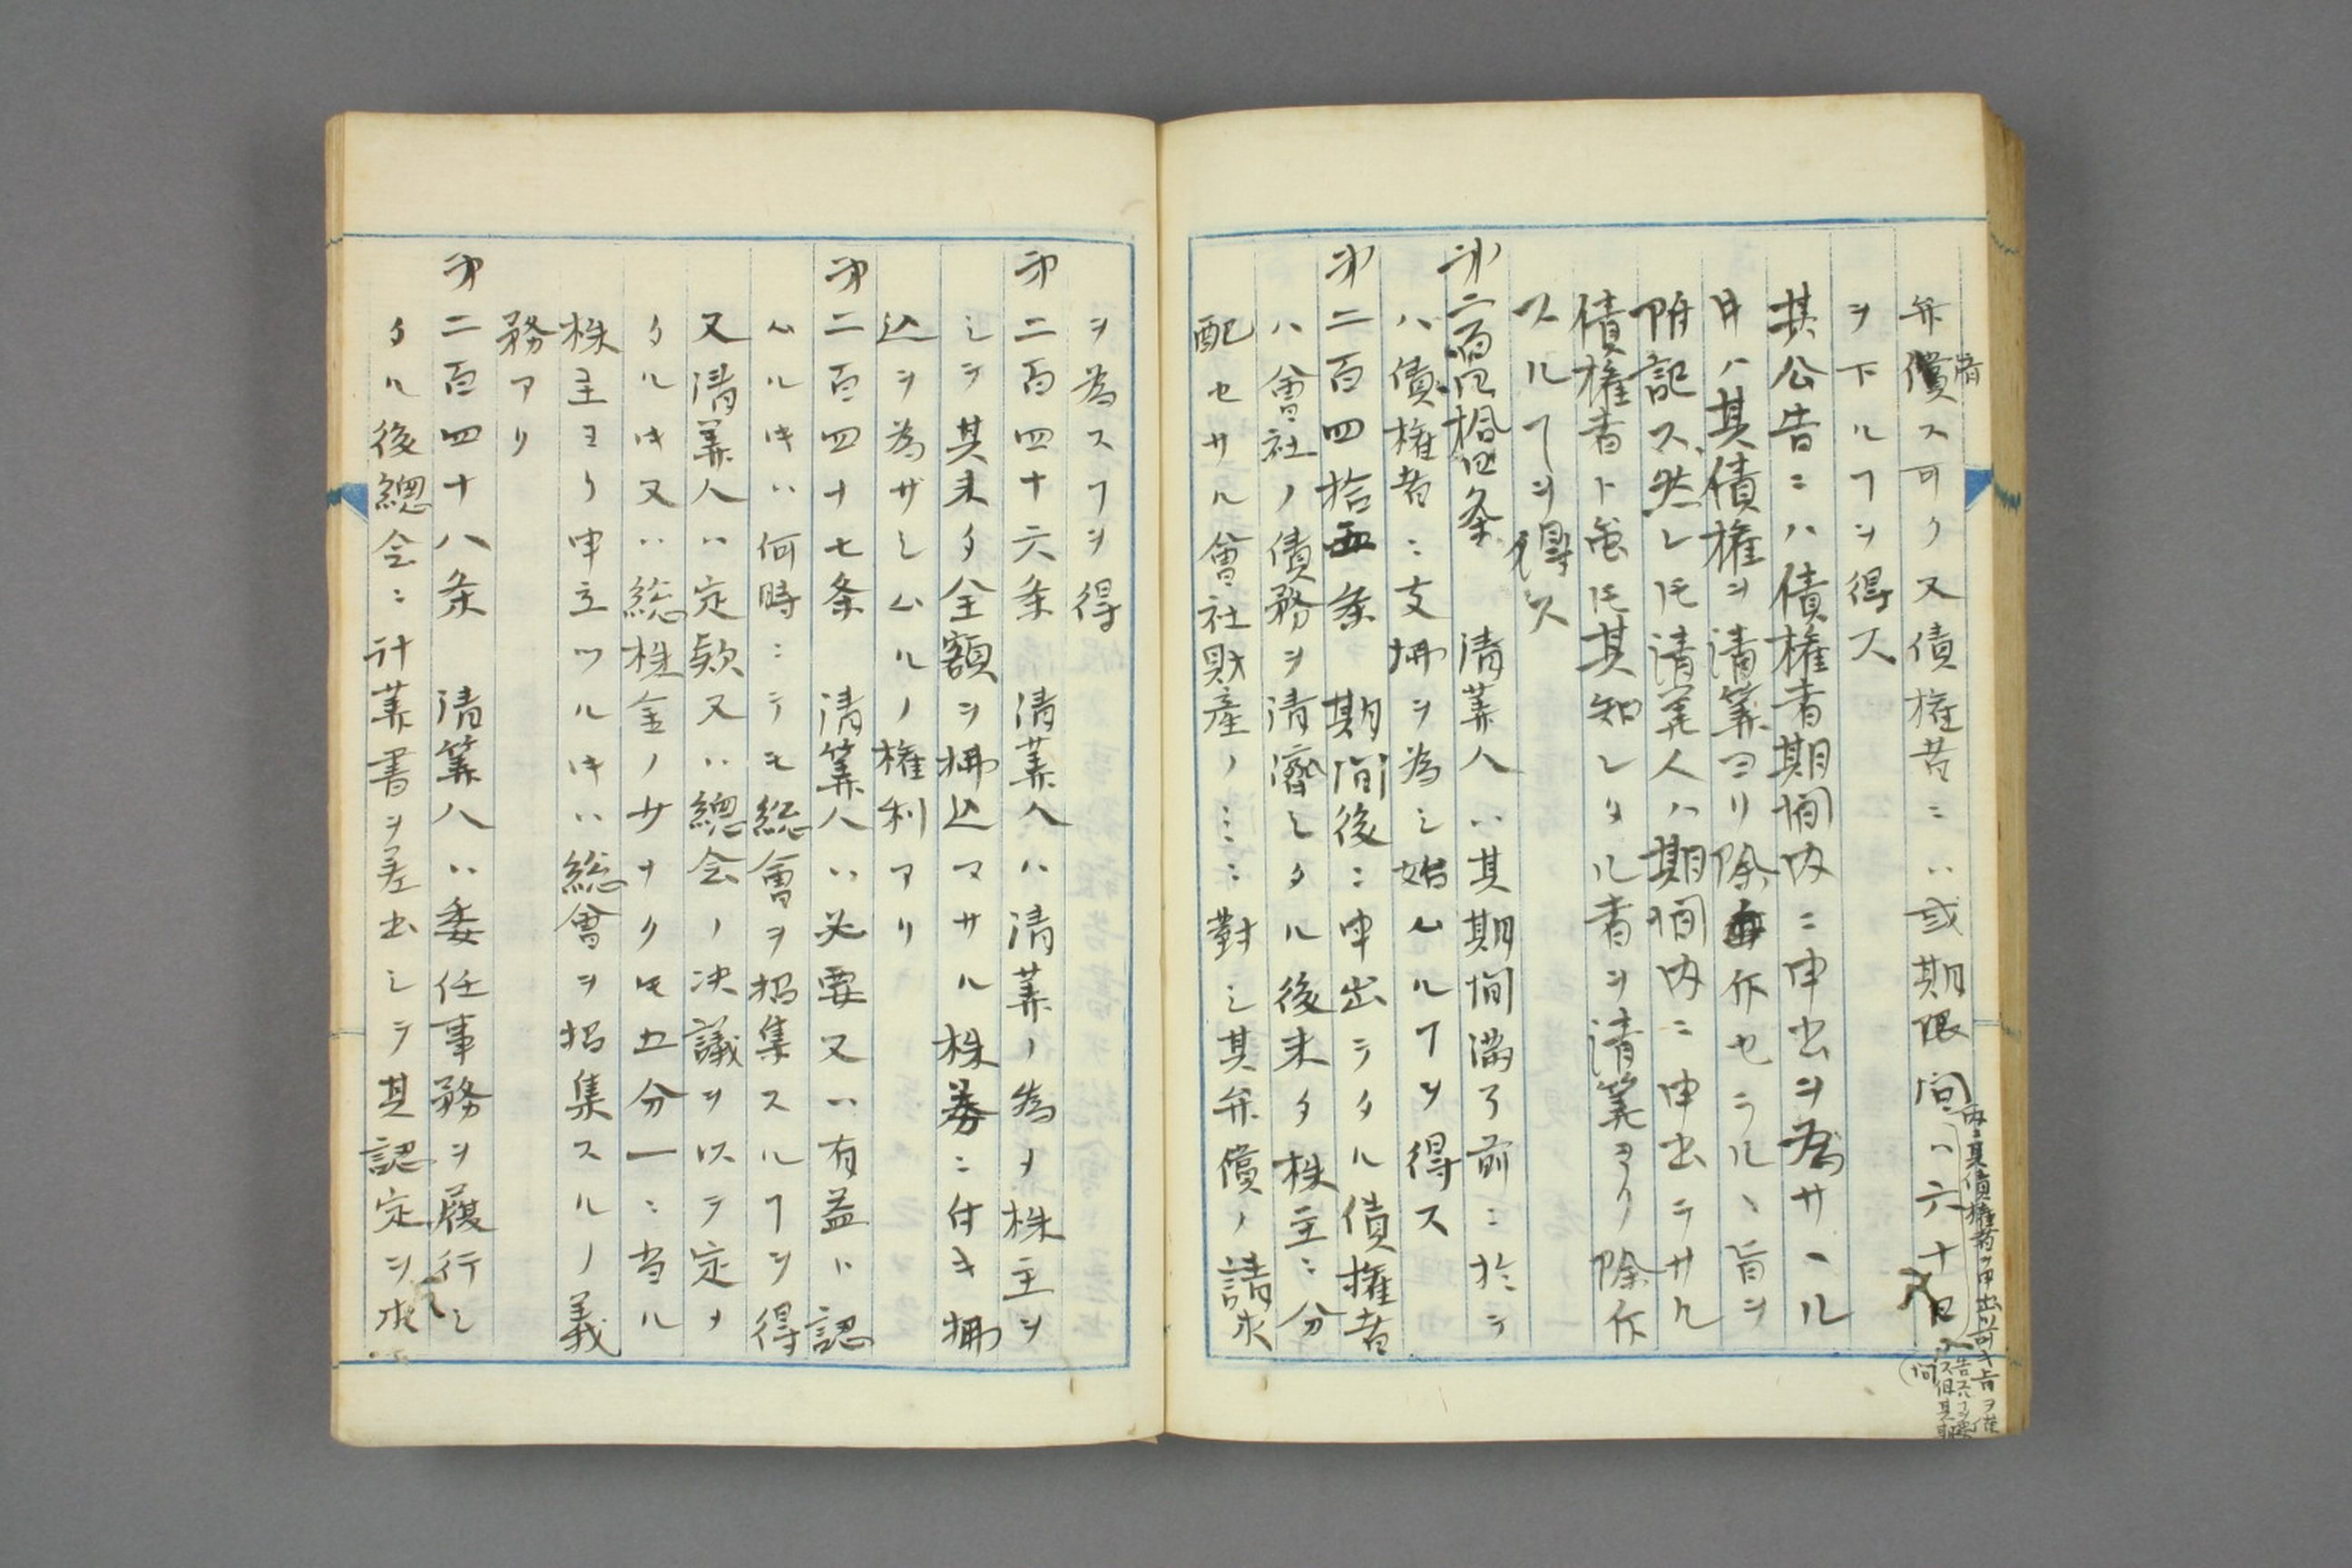 弁償ス可ク又債権者ニハ或期限間ハ六十日
済
内ニ其債権者ヲ申出ツ可キ旨ヲ催
告スルヿヲ要
ス但其期
間
ヲ下ルヿヲ得ス
其公告ニハ債権者期間内ニ申出ヲ為サヽル
トキハ其債権ヲ清算ヨリ除斥セラルヽ旨ヲ
附記ス然レ𪜈清算人ハ期間内ニ申出テサル
債権者ト雖𪜈其知レタル者ヲ清算ヨリ除斥
スルヿヲ得ス
第二百四拾四条　清算人ハ其期間満了前ニ於テ
ハ債権者ニ支拂ヲ為シ始ムルヿヲ得ス
第二百四拾五条　期間後ニ申出テタル債権者
ハ會社ノ債務ヲ清濟シタル後未タ株主ニ分
配セサル會社財産ノミニ對シ其弁償ノ請求
ヲ為スヿヲ得
第二百四十六条　清算人ハ清算ノ為メ株主ヲ
シテ其未タ全額ヲ拂込マサル株券ニ付キ拂
込ヲ為サシムルノ権利アリ
第二百四十七条　清算人ハ必要又ハ有益ト認
ムルトキハ何時ニテモ総會ヲ招集スルヿヲ得
又清算人ハ定款又ハ總会ノ決議ヲ以テ定メ
タルトキ又ハ総株金ノ少ナクトモ五分一ニ当ル
株主ヨリ申立ツルトキハ総會ヲ招集スルノ義
務アリ
第二百四十八条　清算人ハ委任事務ヲ履行シ
タル後總会ニ計算書ヲ差出シテ其認定ヲ求